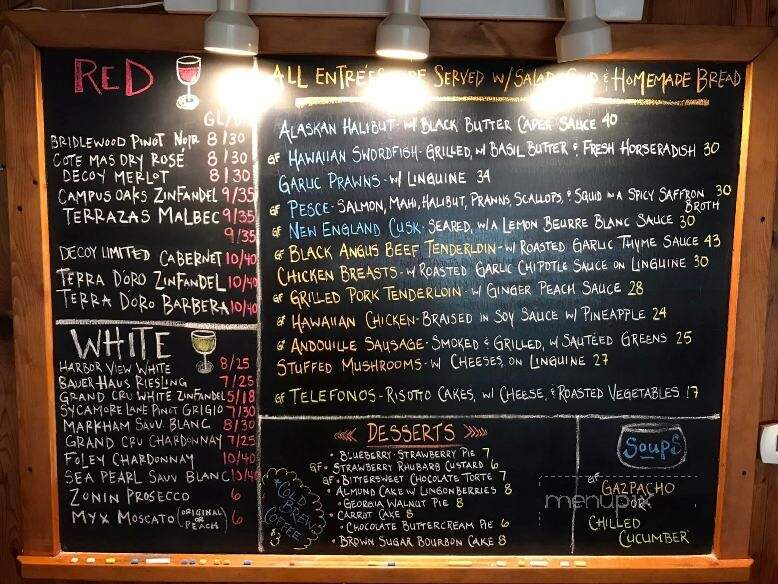 RED
GL/
BRIDLEWOOD PINOT NOIR 8/30
COTE MAS DRY ROSÉ 8/30
DECOY MERLOT 8/30
CAMPUS OAKS ZINFANDEL 9/35
TERRAZAS MALBEC 9/35
9/35
DECOY LIMITED CABERNET 10/40
TERRA D'ORO ZINFANDEL 10/40
TERRA D'ORO BARBERA 10/40
WHITE
HARBOR VIEW WHITE 8/25
BAUER HAUS RIESLING 7/25
GRAND CRU WHITE ZINFANDEL 5/18
SYCAMORE LANE PINOT GRIGIO 7/30
MARKHAM SAUV BLANC 8/30
GRAND CRU CHARDONNAY 7/25
FOLEY CHARDONNAY 10/40
SEA PEARL SAUV BLANC 10/40
ZONIN PROSECCO 6
MYX MOSCATO (ORIGINAL OR PEACH) 6
ALL ENTRÉES SERVED W/ SALAD & HOMEMADE BREAD
ALASKAN HALIBUT - W/ BLACK BUTTER CAPER SAUCE 40
GF HAWAIIAN SWORDFISH - GRILLED, W/ BASIL BUTTER & FRESH HORSERADISH 30
GARLIC PRAWNS - W/ LINGUINE 34
GF PESCE - SALMON, MAHI, HALIBUT, PRAWNS, SCALLOPS, & SQUID IN A SPICY SAFFRON BROTH 30
GF NEW ENGLAND CUSK - SEARED, W/ A LEMON BEURRE BLANC SAUCE 30
GF BLACK ANGUS BEEF TENDERLOIN - W/ ROASTED GARLIC THYME SAUCE 43
CHICKEN BREASTS - W/ ROASTED GARLIC CHIPOTLE SAUCE ON LINGUINE 30
GF GRILLED PORK TENDERLOIN - W/ GINGER PEACH SAUCE 28
GF HAWAIIAN CHICKEN - BRAISED IN SOY SAUCE W/ PINEAPPLE 24
GF ANDOUILLE SAUSAGE - SMOKED & GRILLED, W/ SAUTÉED GREENS 25
STUFFED MUSHROOMS - W/ CHEESES, ON LINGUINE 27
GF TELEFONOS - RISOTTO CAKES, W/ CHEESE, & ROASTED VEGETABLES 17
DESSERTS
• BLUEBERRY-STRAWBERRY PIE 7
GF • STRAWBERRY RHUBARB CUSTARD 6
GF • BITTERSWEET CHOCOLATE TORTE 7
• ALMOND CAKE W/ LINGONBERRIES 8
• GEORGIA WALNUT PIE 8
• CARROT CAKE 8
• CHOCOLATE BUTTERCREAM PIE 6
• BROWN SUGAR BOURBON CAKE 8
*COLD BREW COFFEE* $3
SOUPS
GF
GAZPACHO
OR
CHILLED
CUCUMBER
menupix